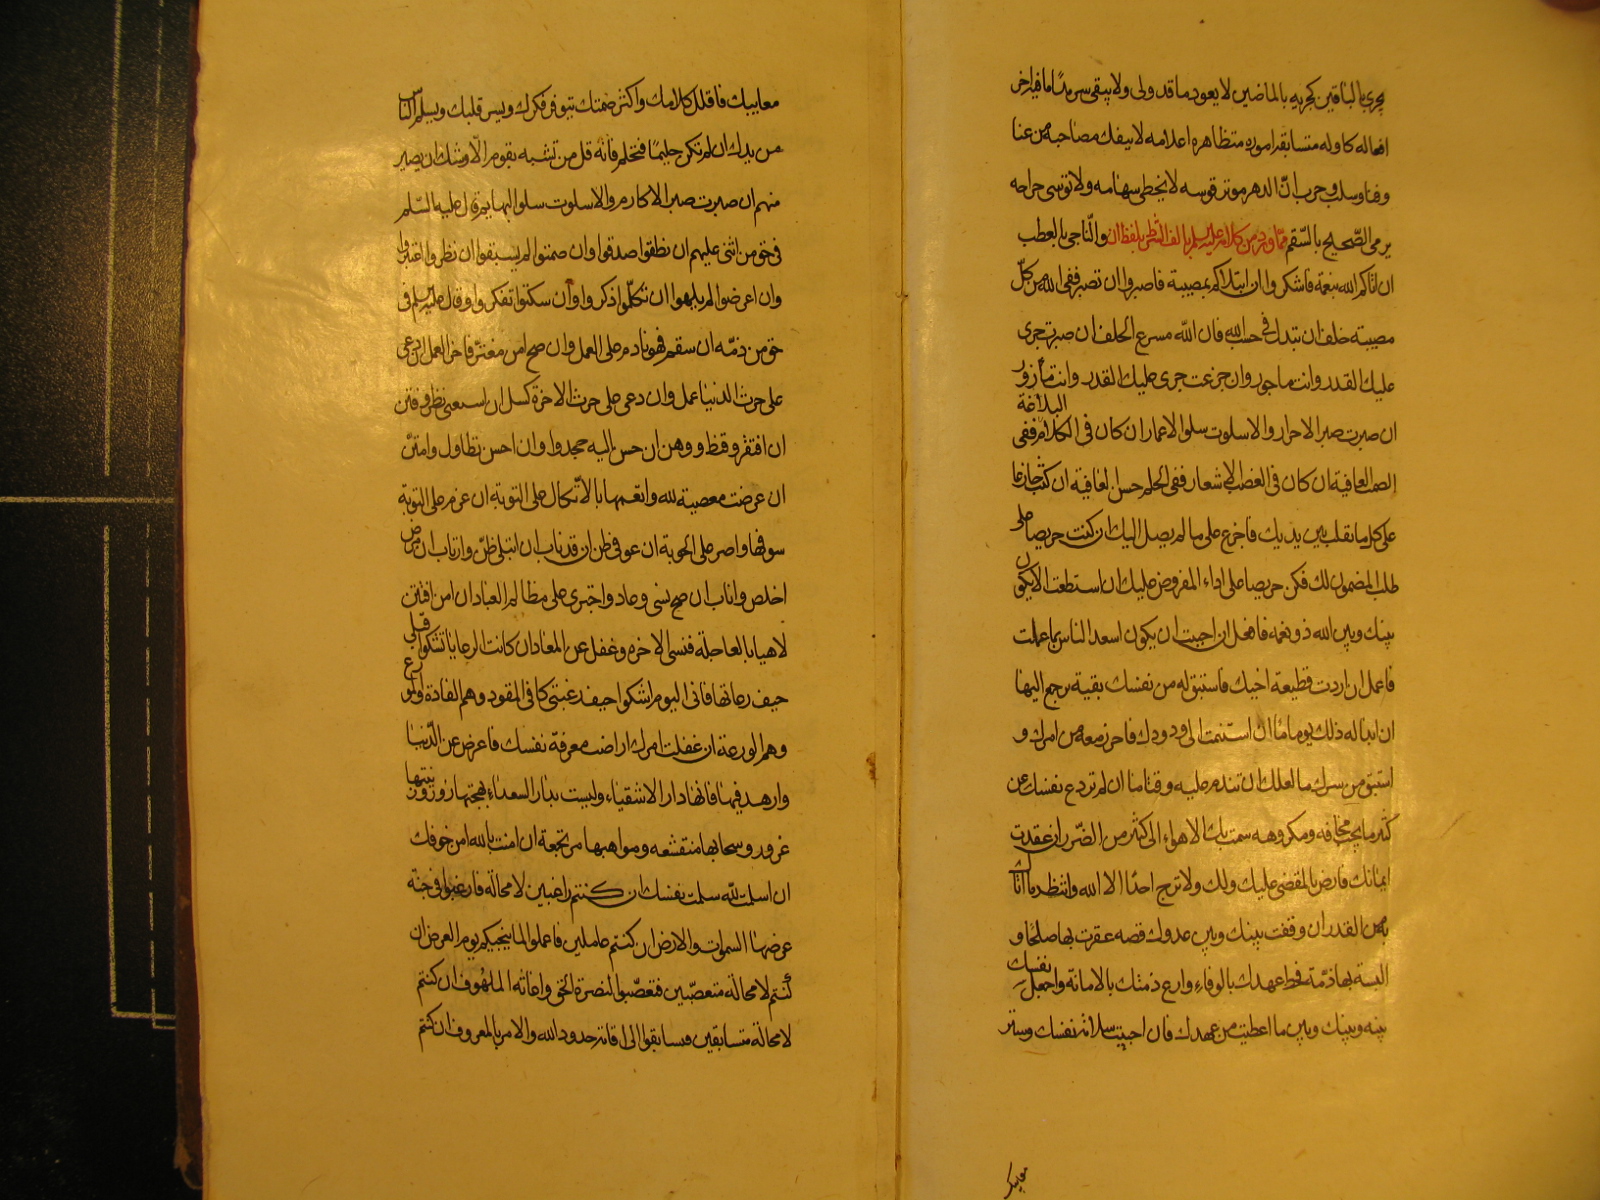 يجري بالباقين كجريه بالماضين لا يعود ما قد ولى ولا يبقى سرمدًا ما فيه اخر
افعاله كاوله متسابقة اموره متظاهرة اعلامه لا ينفك مصاحبه من عنا
وفنا وسلب وحرب انّ الدهر موتر قوسه لا يخطى سهامه ولا توسى جراحه
يرمى الصّحيح بالسّقم والنّاجى بالعطب ممّا ورد من كلامه عليه السلم بالف النّظر بلفظ ان
ان اتاكم الله بنعمة فاشكروا ان ابتلاكم بمصيبة فاصبروا ان تصبر ففى الله من كلّ
مصيبة خلف ان تبذل في حب الله فان الله مسرع الخلف ان صبرت جرى
عليك القدر وانت ماجور وان جزعت جرى عليك القدر وانت مأزور
ان صبرت صبر الاحرار والا سلوت سلو الاغمار ان كان فى الكلام البلاغة ففى
الصمت العافية ان كان فى الغضب الانتصار ففى الحلم حسن العاقبة ان كنت جازعا
على كل ما تفلت من يديك فاجزع على ما لم يصل اليك ان كنت حريصا على
طلب المضمون لك فكن حريصا على اداء المفروض عليك ان استطعت الا يكون
بينك وبين الله ذو نعمه فافعل ان احببت ان يكون اسعد الناس بما عملت
فاعمل ان اردت قطيعة اخيك فاستبق له من نفسك بقية يرجع اليها
ان بدا له ذلك يوما ما ان استنمت الى ودودك فاحرز معه من امرك و
استبق من سرك ما لعلك ان تندم عليه وقتا ما ان لم تردع نفسك عن
كثير مما يحب مخافه ومكروهه سمت بك الاهواء الى كثير من الضرر ان عقدت
ايمانك فارض بالمقضى عليك ولك ولا ترج احدًا الا الله وانتظر ما اتاك
به من القدر ان وقفت بينك وبين عدوك قصه عقدت بها صلحًا و
البسته بها ذمّة فحط عهدك بالوفاء وارع ذمتك بالامانة واجعل نفسك
بينه وبينك وبين ما اعطيت من عهدك فان احببت سلامة نفسك وستر
معايبك
معايبك فاقلل كلامك واكثر صمتك يتوفر فكرك ويستر قلبك ويسلم النّاس
من يدك ان لم تكن حليمًا فتحلم فانّه قل من تشبه بقوم الّا اوشك ان يصير
منهم ان صبرت صبر الاكارم والا سلوت سلو البهايم قال عليه السّلم
في حق من اثنى عليهم ان نطقوا صدقوا وان صمتوا لم يسبقوا ان نظروا اعتبروا
وان اعرضوا لم يلهوا ان تكلّموا ذكروا وان سكتوا تفكروا وقال عليه السلم فى
حق من ذمّه ان سقم فهو نادم على العمل وان صح امن مغترّ فاخر العمل ان دعى
على حرث الدنيا عمل وان دعى على حرث الاخرة كسل ان استغنى بطر وفتن
ان افتقر وقنط ووهن ان حسن اليه جحد وان احسن تطاول وامتنّ
ان عرضت معصية لله واقعها بالاتّكال على التوبة ان عزم على التوبة
سوفها واصر على الحوبة ان عوفى ظن ان قد تاب ان ابتلى ظنّ وارتاب ان مرض
اخلص واناب ان صح نسى وعاد واجترى على مظالم العباد ان امن افتتن
لاهيا بالعاجلة فنسى الاخره وغفل عن المعاد ان كانت الرعايا تشكوا قبلى
حيف رعاتها فانى اليوم اشكوا حيف رعيتى كانى المقود وهم القادة او الموزوع
وهم الوزعة ان عقلت امرك او اصبت معرفة نفسك فاعرض عن الدّنيا
وازهد فيها فانّها دار الاشقياء وليست بدار السعداء بهجتها زور وزينتها
غرور وسحايبها منقشعه ومواهبها مرتجعة ان امنت بالله امن خوفك
ان اسلمت للّه سلمت نفسك ان كنتم راغبين لا محالة فارغبوا فى جنة
عرضها السموات والارض ان كنتم عاملين فاعملوا لما ينجيكم يوم العرض ان
كُنتم لا محالة متعصّبين فتعصّبوا لنصرة الحق واغاثه الملهُوف ان كنتم
لا محالة متسابقين فتسابقوا الى اقامة حدود الله والامر بالمعروف ان كنتم